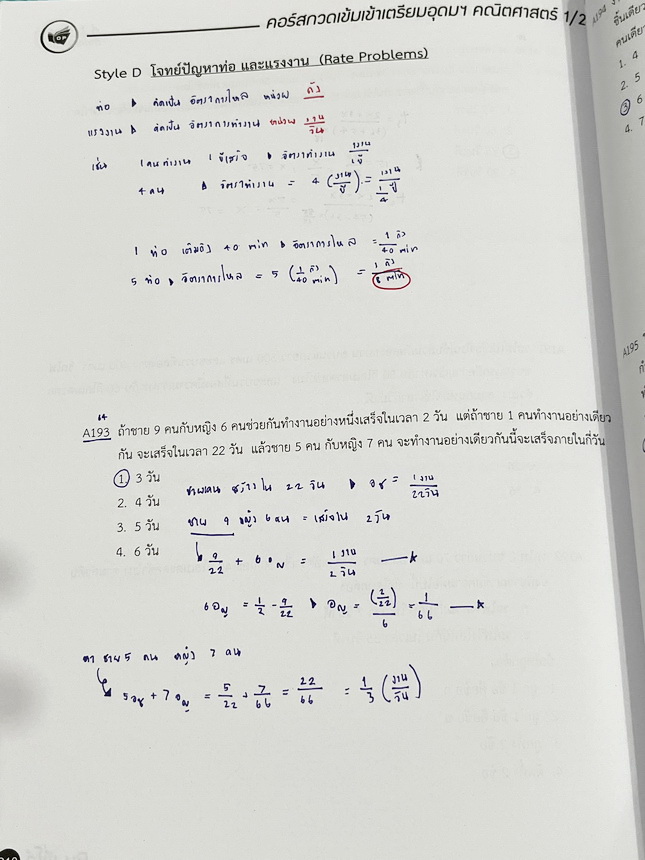 คอร์สกวดเข้มเข้าเตรียมอุดมฯ คณิตศาสตร์ 1/2
Style D โจทย์ปัญหาท่อ และแรงงาน (Rate Problems)
ท่อ คิดเป็น อัตราการไหล หน่วย ถัง
แรงงาน คิดเป็น อัตราการทำงาน หน่วย งาน/วัน
เช่น 1 คนทำงาน 1 ปีเสร็จ อัตราทำงาน งาน/1ปี
4 คน อัตราทำงาน = 4 (งาน/ปี) = งาน/(1/4 ปี)
1 ท่อ เติมถัง 40 min อัตราการไหล = 1 ถัง/40 min
5 ท่อ อัตราการไหล = 5 (1 ถัง/40 min) = 1 ถัง/8 min
64
A193 ถ้าชาย 9 คนกับหญิง 6 คนช่วยกันทำงานอย่างหนึ่งเสร็จในเวลา 2 วัน แต่ถ้าชาย 1 คนทำงานอย่างเดียว
กัน จะเสร็จในเวลา 22 วัน แล้วชาย 5 คน กับหญิง 7 คน จะทำงานอย่างเดียวกันนี้จะเสร็จภายในกี่วัน
1 3 วัน
2. 4 วัน
3. 5 วัน
4. 6 วัน
22 วัน อช = 1 งาน/22 วัน
ชาย 9 หญิง 6 คน = เสร็จใน 2 วัน
9/22 + 6 อญ = 1 งาน/2 วัน
6 อญ = 1/2 - 9/22 อญ = (2/22)/6 = 1/66
หา ชาย 5 คน หญิง 7 คน
5 อช + 7 อญ = 5/22 + 7/66 = 22/66 = 1/3 (งาน/วัน)
A194
ชิ้นเดียว
คนเดียว
1. 4
2. 5
3 6
4. 7
A195